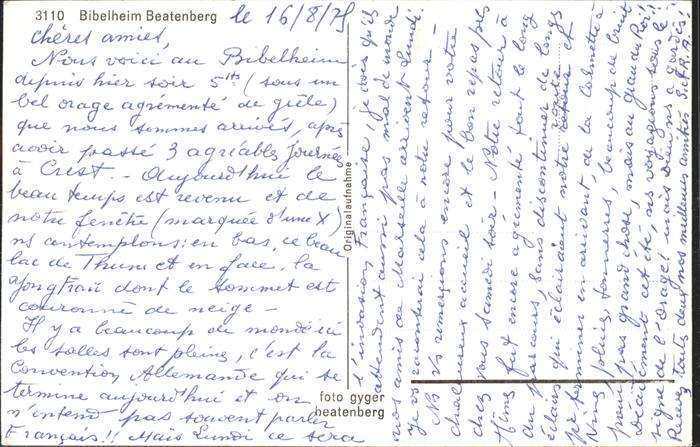 3110 Bibelheim Beatenberg
le 16/8/75
chères amies,
Nous voici au Bibelheim
depuis hier soir 5 hs (sous un
bel orage agrémenté de grêle)
que nous sommes arrivés, après
avoir passé 3 agréables journées
à Crest. - Aujourd'hui le
beau temps est revenu et de
notre fenêtre (marquée d'une X)
ns contemplons: en bas, ce beau
lac de Thune et en face, la
Yongfrau dont le sommet est
couronné de neige -
Il y a beaucoup de monde ici
les salles sont pleines, c'est la
Convention Allemande qui se
termine aujourd'hui et on
n'entend pas souvent parler
Français!! Mais Lundi ce sera
Originalaufnahme
foto gyger
beatenberg
l'invasion Française, je crois qu'ils
attendent aussi pas mal de monde
nos amis de Marseille arrivent Lundi
je vs raconterai cela à notre retour -
Ns vs remercions encore pour votre
chaleureux accueil et le bon repas pris
chez vous samedi soir - Notre retour à
fut encore agrémenté tout le long
du parcours, sans discontinuer de longs
éclairs qui éclairaient notre route et
pr terminer en arrivant de la
pluie, tonnerres, beaucoup de bruit
pour pas grand chose, mais au grand
décidément cet été, ns voyageons sous le
signe de l'orage! mais soyons
Recevez toutes deux nos meilleures amitiés S. et R. P.